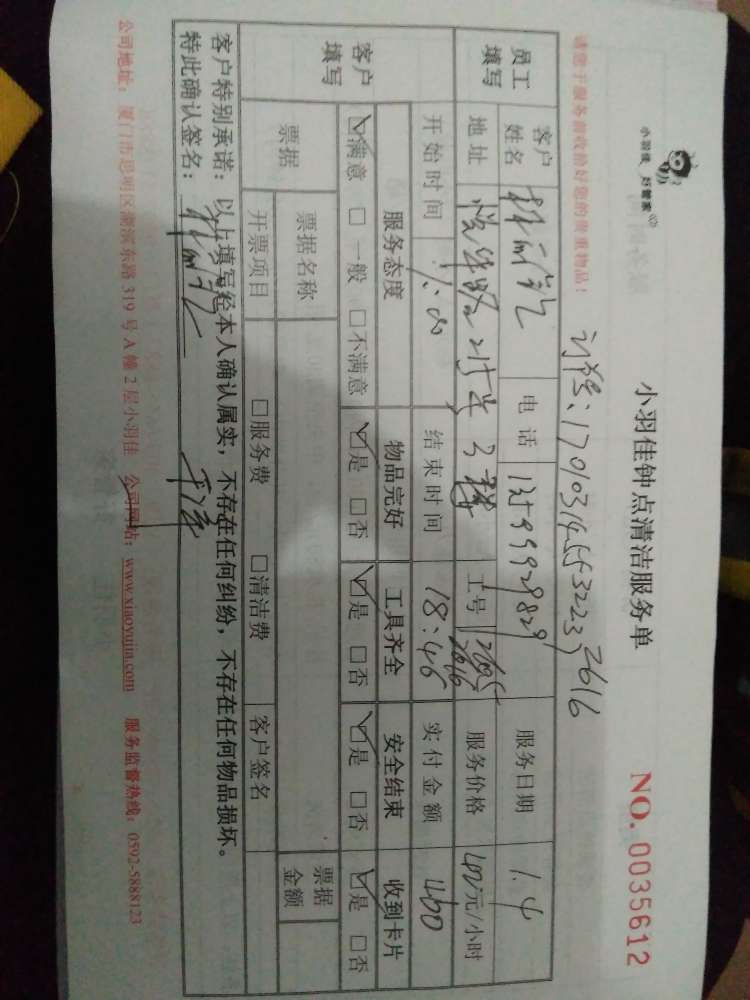 小羽佳 好管家
小羽佳钟点清洁服务单
NO. 0035612
请您于服务前收拾好您的贵重物品!
2616
员工填写
客户姓名
电话
服务日期 1.4
地址
工号 2616
服务价格 400元/小时
开始时间
结束时间 18:46
实付金额 400
客户填写
服务态度 物品完好 工具齐全 安全结束 收到卡片
☑满意 □一般 □不满意 ☑是 □否 ☑是 □否 ☑是 □否 ☑是 □否
票据
票据名称
票据金额
开票项目 □服务费 □清洁费 客户签名
客户特别承诺:以上填写经本人确认属实,不存在任何纠纷,不存在任何物品损坏。
特此确认签名:
公司地址:厦门市思明区湖滨东路 319 号 A 幢 2 层小羽佳 公司网站:www.xiaoyujia.com 服务监督热线:0592-5888123